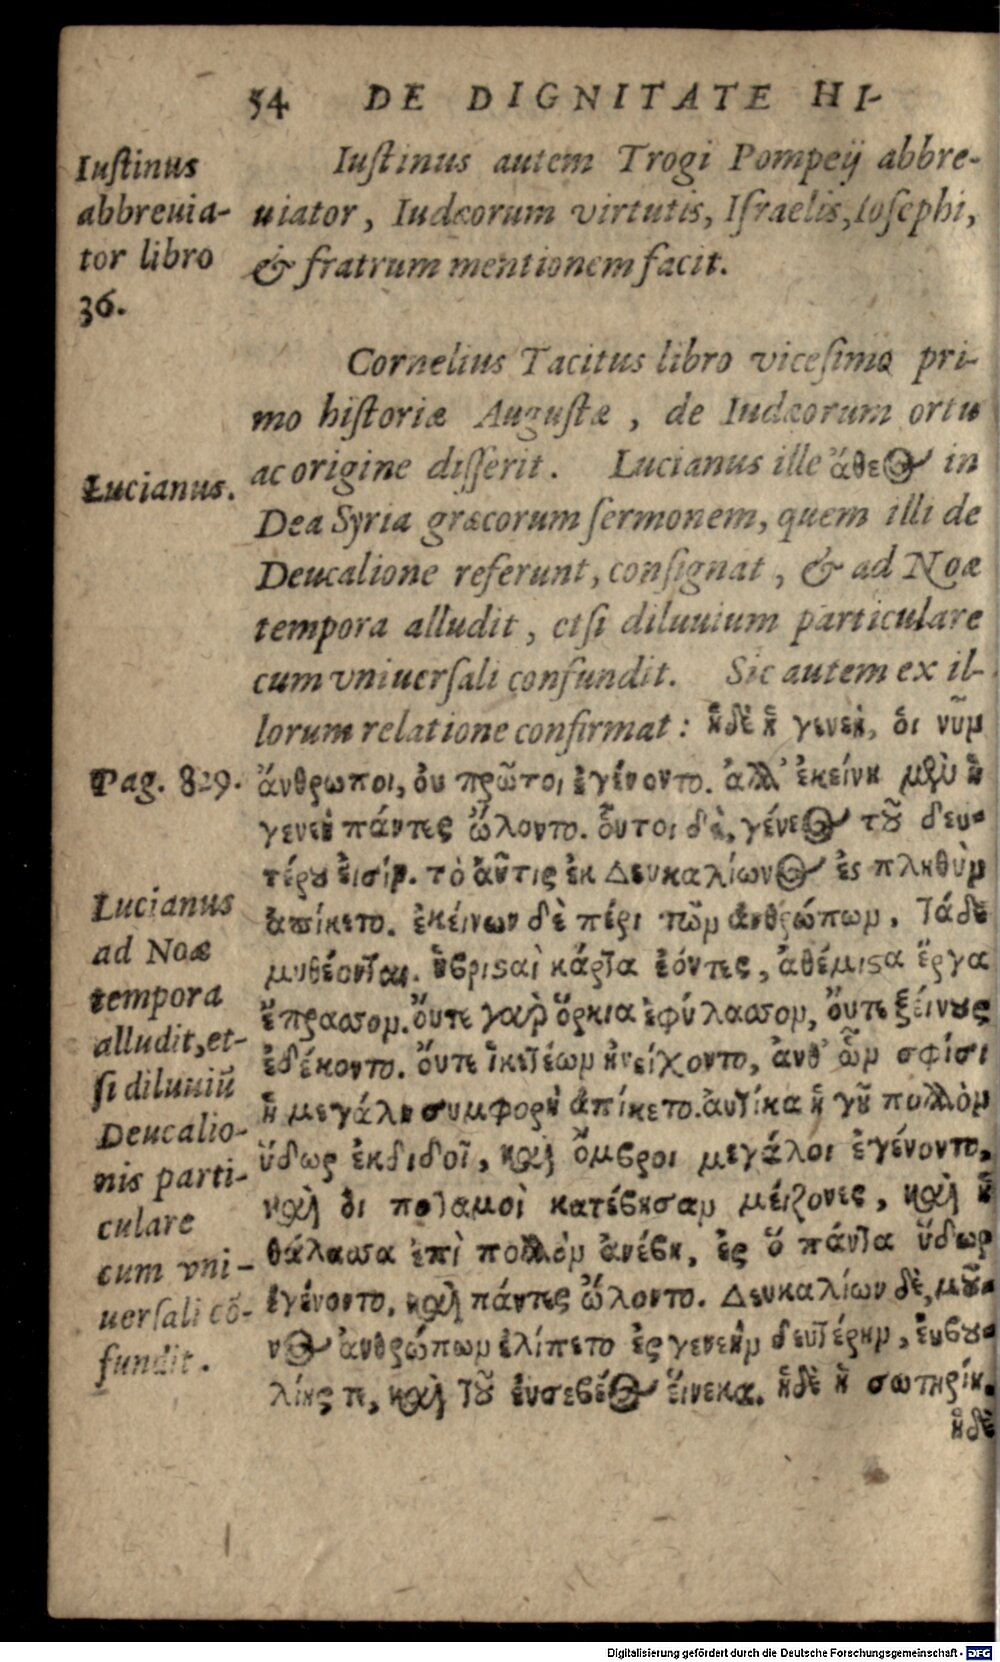 54 DE DIGNITATE HI-
Iustinus
abbreuia-
tor libro
36.
Iustinus autem Trogi Pompeij abbre-
uiator, Iudæorum virtutis, Israelis, Iosephi,
& fratrum mentionem facit.
Cornelius Tacitus libro vicesimo pri-
mo historiæ Augustæ, de Iudæorum ortu
ac origine disserit. Lucianus ille ἄθεος in
Lucianus.
Dea Syria græcorum sermonem, quem illi de
Deucalione referunt, consignat, & ad Noæ
tempora alludit, etsi diluuium particulare
cum vniuersali confundit. Sic autem ex il-
lorum relatione confirmat: ἥδε ἡ γενεὴ, ὁι νῦν
Pag. 829.
ἄνθρωποι, ὀυ πρῶτοι ἐγένοντο. ἀλλ' ἐκείνη μὲν ἡ
γενεὴ πάντες ὤλοντο. οὗτοι δὲ, γένεος τοῦ δευ-
τέρου ἐισίν. τὸ ἀῦτις ἐκ Δευκαλίωνος ἐς πληθὺν
ἀπίκετο. ἐκείνων δὲ πέρι τῶν ἀνθρώπων, τάδε
μυθέονται. ὑβρισαὶ κάρτα ἐόντες, ἀθέμιστα ἔργα
ἔπρασσον. ὄυτε γὰρ ὅρκια ἐφύλασσον, ὄυτε ξείνους
ἐδέκοντο. ὄυτε ἱκετέων ἠνείχοντο, ἀνθ' ὧν σφίσι
ἡ μεγάλη συμφορὴ ἀπίκετο. ἀυτίκα ἡ γῆ πολλὸν
ὕδωρ ἐκδιδοῖ, καὶ ὄμβροι μεγάλοι ἐγένοντο,
καὶ ὁι ποταμοὶ κατέβησαν μέιζονες, καὶ ἡ
θάλασσα ἐπὶ πολλὸν ἀνέβη, ἐς ὅ πάντα ὕδωρ
ἐγένοντο, καὶ πάντες ὤλοντο. Δευκαλίων δὲ, μοῦ-
νος ἀνθρώπων ἐλίπετο ἐς γενεὴν δευτέρην, ἐυβου-
λίης τε, καὶ τοῦ ἐυσεβέος ἕινεκα. ἥδε ἡ σωτηρίη.
ἥδε
Lucianus
ad Noæ
tempora
alludit, et-
si diluuiũ
Deucalio-
nis parti-
culare
cum vni-
uersali cõ-
fundit.
Digitalisierung gefördert durch die Deutsche Forschungsgemeinschaft - DFG